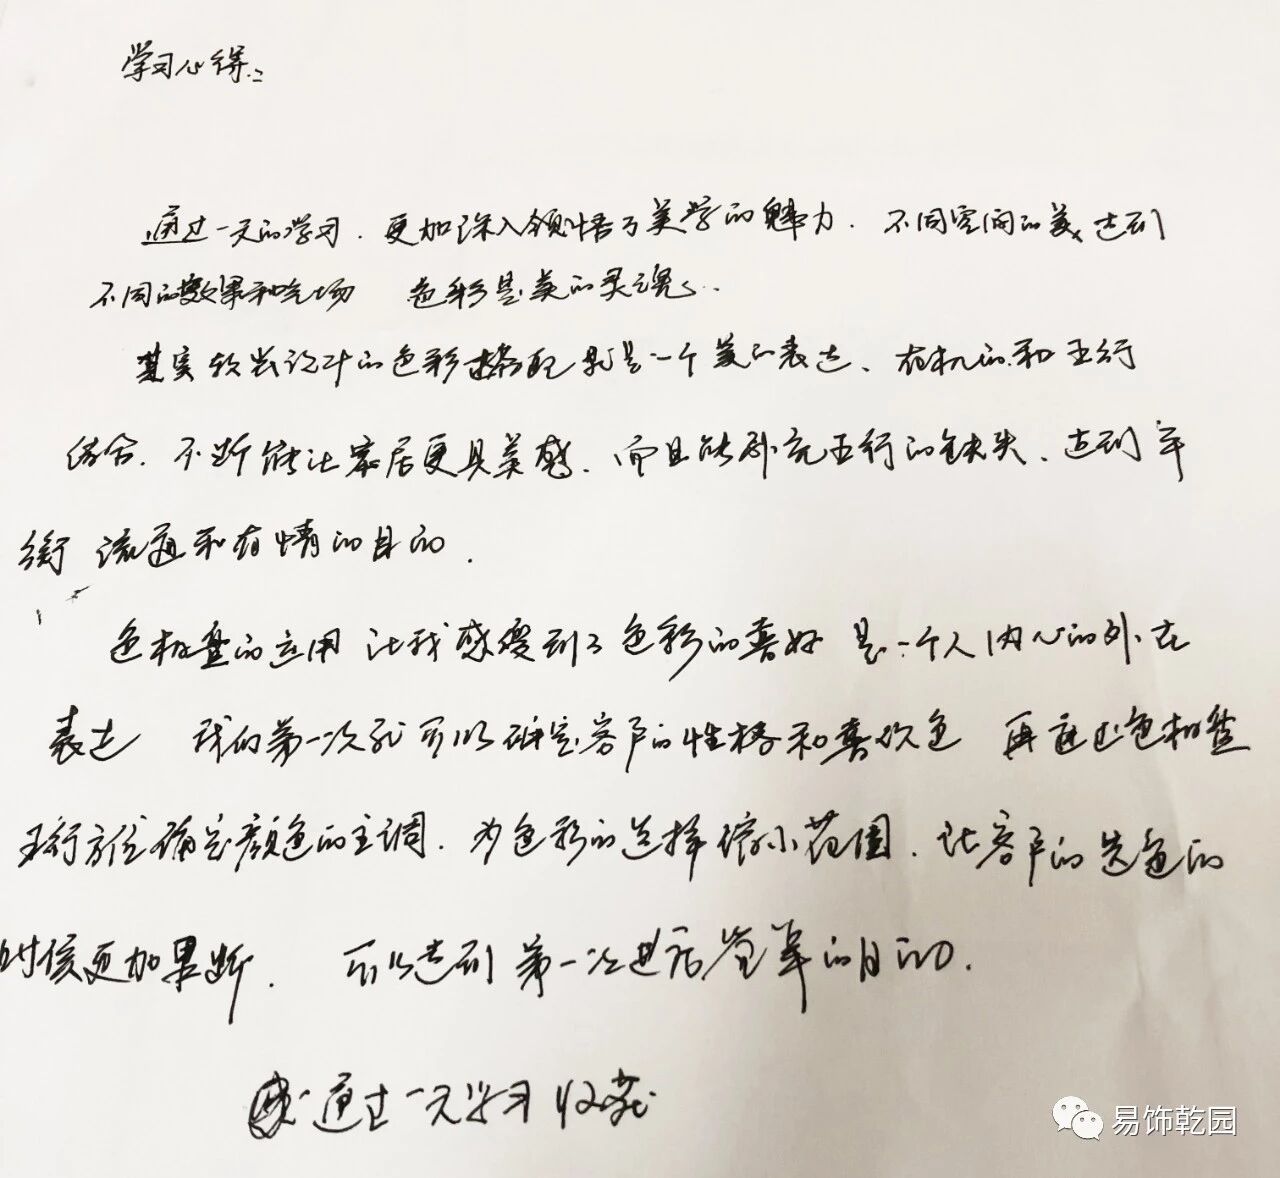 学习心得:
通过一天的学习.更加深入领悟了美学的魅力.不同空间的美达到
不同的效果和气场 色彩是美的灵魂..
其实软装设计的色彩搭配就是一个美的表达、有机的和五行
结合.不断能让家居更具美感.而且能补充五行的缺失、达到平
衡 流通和有情的目的.
色相盘的应用 让我感受到了色彩的喜好 是一个人内心的外在
表达 我们第一次就可以确定客户的性格和喜欢色 再通过色相盘
五行方位确定颜色的主调.为色彩的选择缩小范围.让客户的选色的
时候更加果断. 可以达到第一次进店签单的目的.
通过一天学习收获
易饰乾园